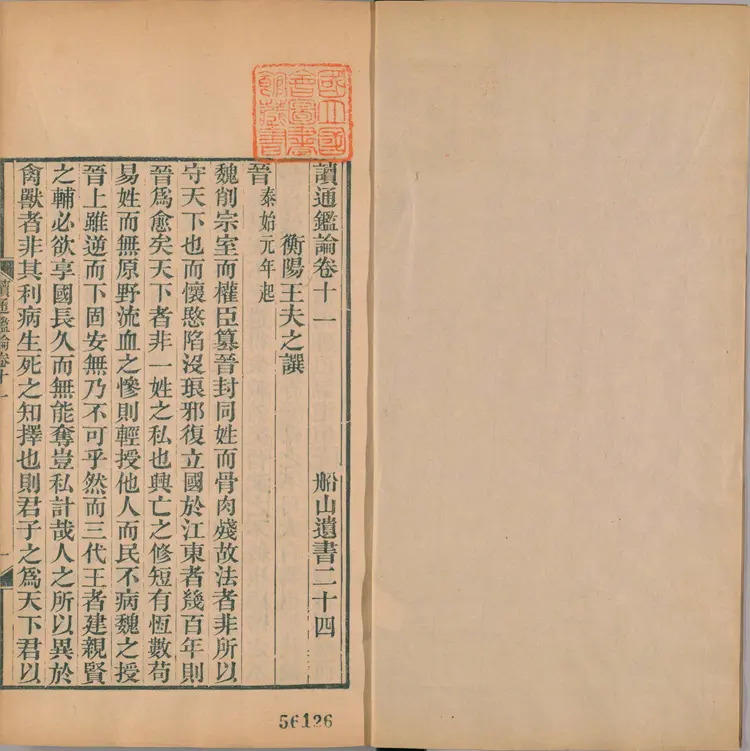 國立國
會圖書
館藏書
讀通鑑論卷十一 船山遺書二十四
衡陽王夫之譔
晉
泰始元年起
魏削宗室而權臣篡晉封同姓而骨肉殘故法者非所以
守天下也而懷愍陷沒琅邪復立國於江東者幾百年則
晉爲愈矣天下者非一姓之私也興亡之修短有恆數苟
易姓而無原野流血之慘則輕授他人而民不病魏之授
晉上雖逆而下固安無乃不可乎然而三代王者建親賢
之輔必欲享國長久而無能奪豈私計哉人之所以異於
禽獸者非其利病生死之知擇也則君子之爲天下君以
讀通鑑論卷十一
一
56126